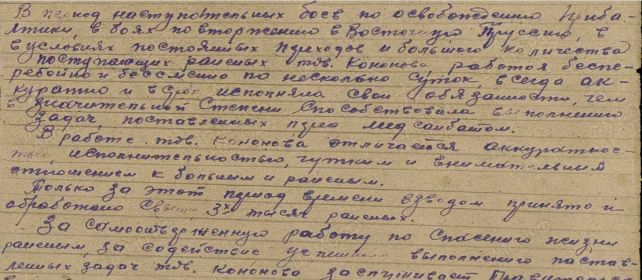 В период наступательных боев по освобождению Приба-
лтики, в боях по вторжению в Восточную Пруссию, в
в условиях постоянных переходов и большого количества
поступающих раненых тов. Кононова работая беспе-
ребойно и бессменно по несколько суток, всегда ак-
куратно и в срок исполняла свои обязанности, чем
в значительной степени способствовала выполнению
задач, поставленных перед медсанбатом.
В работе тов. Кононова отличается аккуратнос-
тью, исполнительностью, чутким и внимательным
отношением к больным и раненым.
Только за этот период времени взводом принято и
обработано свыше 3х тысяч раненых.
За самоотверженную работу по спасению жизни
раненым, за содействие успешному выполнению постав-
ленных задач тов. Кононова заслуживает